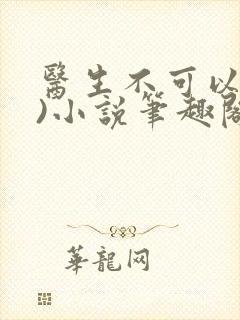 醫生不可以
)小說筆趣閣
華龍网